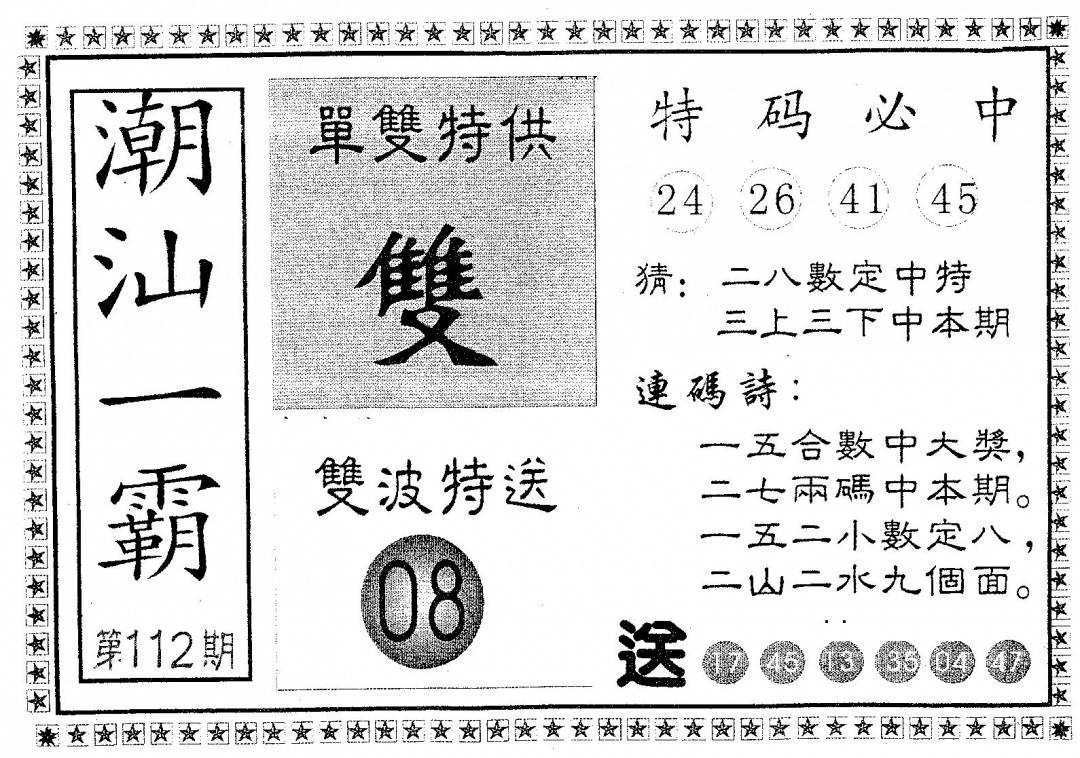 潮汕一霸
第112期
單雙特供
雙
雙波特送
08
特码必中
24 26 41 45
猜：二八數定中特
三上三下中本期
連碼詩：
一五合數中大獎，
二七兩碼中本期。
一五二小數定八，
二山二水九個面。
送 17 45 13 35 04 47